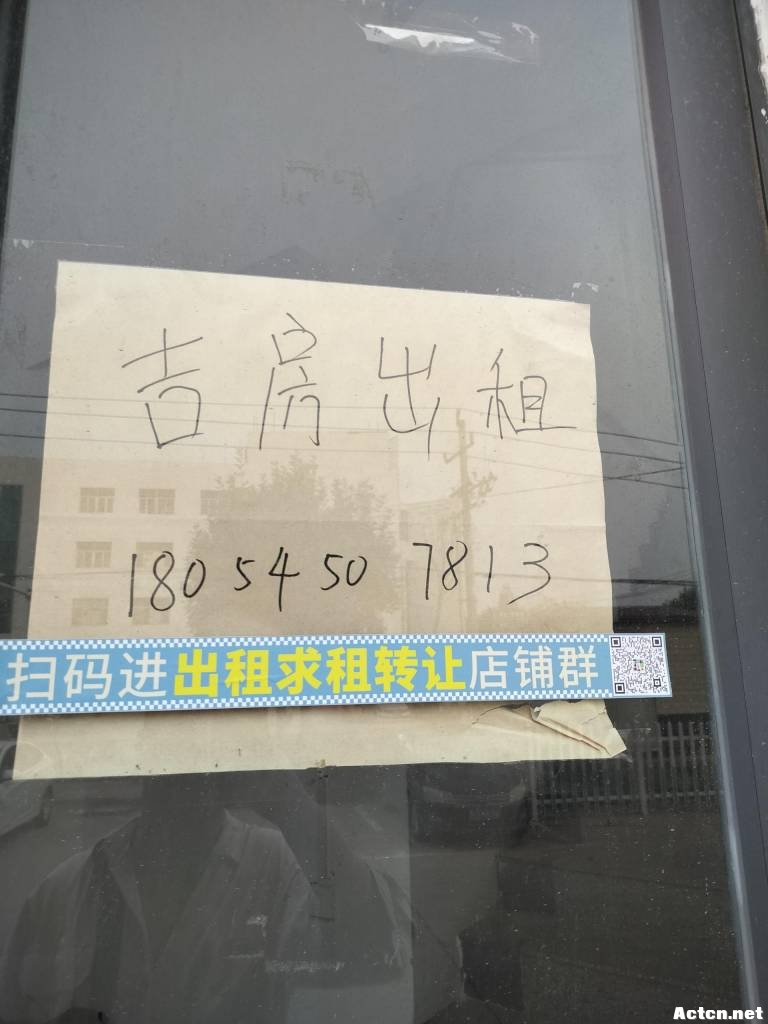 吉房出租
180 54 50 7813
扫码进出租求租转让店铺群
Actcn.net